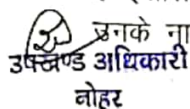 उनके ना
उपखण्ड अधिकारी
नोहर